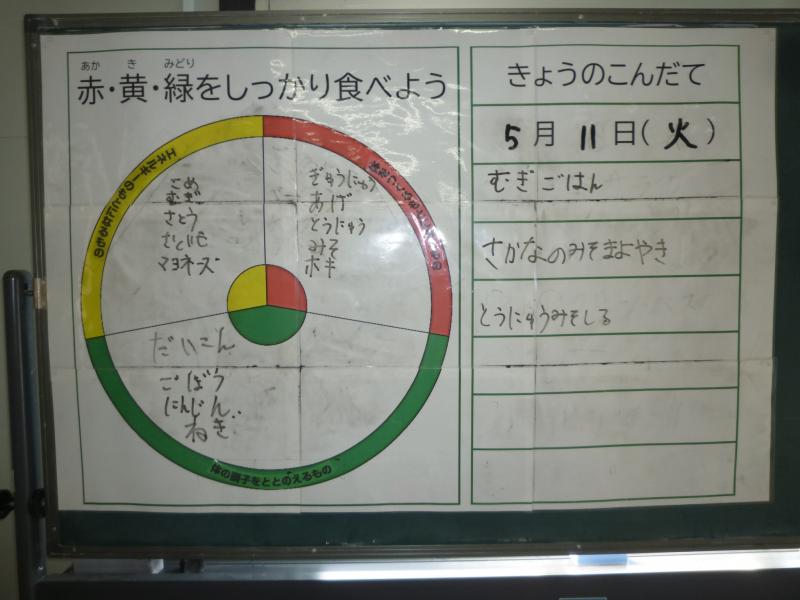 あか き みどり
赤・黄・緑をしっかり食べよう
エネルギーのもとになるもの
こめ
むぎ
さとう
さといも
マヨネーズ
ぎゅうにゅう
あげ
とうにゅう
みそ
ホキ
だいこん
ごぼう
にんじん
ねぎ
体の調子をととのえるもの
きょうのこんだて
5月11日(火)
むぎごはん
さかなのみそまよやき
とうにゅうみそしる